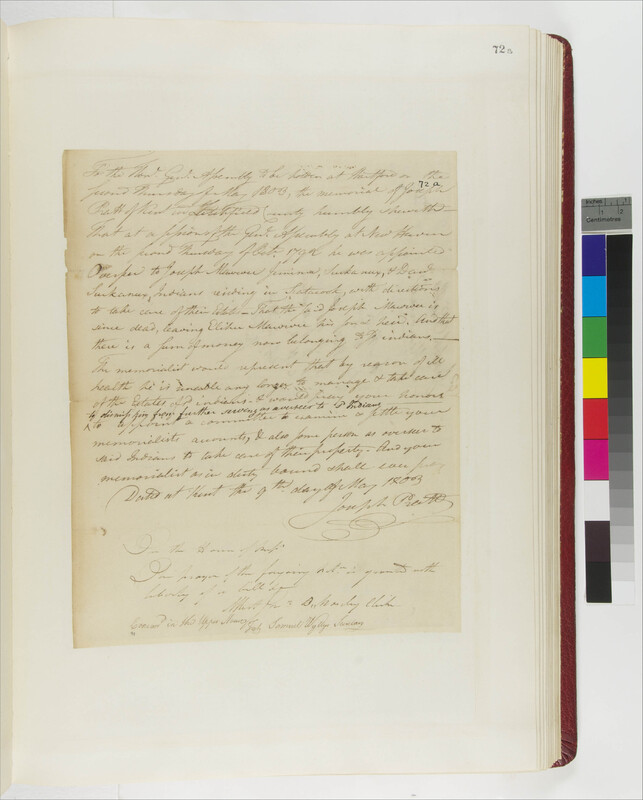 72a
To the Hon.ble Gen.l Assembly to be holden at Hartford on the
second Thursday of May 1803, the memorial of Joseph
72 a
Pratt of Kent in Litchfield County humbly sheweth—
That at a session of the Gen.l Assembly at New Haven
on the second Thursday of Oct.r he was appointed
Overseer to Joseph Mauwee Jemima Suckanux, & David
Suckanux, Indians residing in Scatacook, with directions
to take care of their — That the s.d Joseph Mauwee is
since dead, leaving Elihu Mauwee his heir. And that
there is a sum of money now belonging to s.d indians.—
The memorialist would represent that by reason of ill
health he is unable any longer to manage & take care
of the Estates of s.d indians & would pray your honors
to dismiss him from further serving as overseer to s.d Indians
& to appoint a committee to examine & settle your
memorialists accounts, & also some person as overseer to
said Indians to take care of their property. And your
memorialist as in duty bound shall ever pray
Dated at Kent the 9th day of May 1803
Joseph Pratt
In the House of Rep.s
The prayer of the foregoing is granted with
liberty of a bill &c
Attest Clerk
in the Upper House
Test Samuel Wyllys Secretary
Inches 1 2
Centimetres